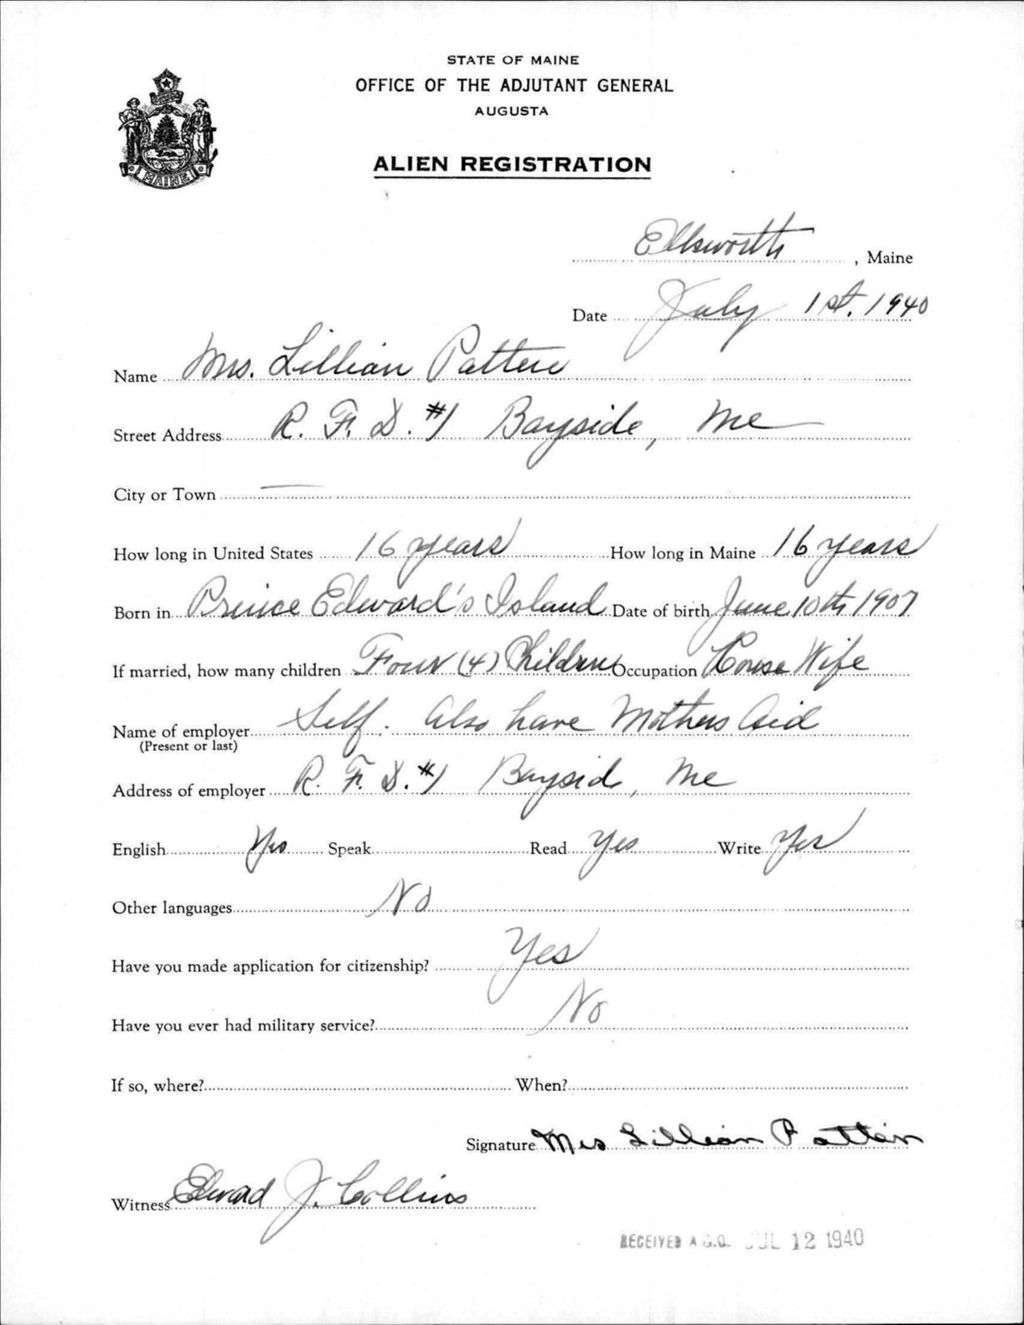 STATE OF MAINE
OFFICE OF THE ADJUTANT GENERAL
AUGUSTA
ALIEN REGISTRATION
MAINE
Ellsworth, Maine
Date July 1st. 1940
Name Mrs. Lillian Patten
Street Address R. F. D. #1 Bayside, Me
City or Town —
How long in United States 16 years How long in Maine 16 years
Born in Prince Edward's Island Date of birth June 10th 1907
If married, how many children Four (4) Children Occupation House Wife
Name of employer Self. Also have Mothers Aid
(Present or last)
Address of employer R. F. D. #1 Bayside, Me
English Yes Speak Read Yes Write Yes
Other languages No
Have you made application for citizenship? Yes
Have you ever had military service? No
If so, where? When?
Signature Mrs Lillian Patten
Witness Edward J. Collins
RECEIVED A.G.O. JUL 12 1940